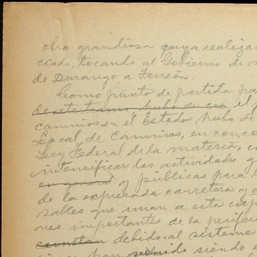 obra grandiosa cuya realiza
ciado, tocando al Gobierno de
de Durango a Torreón.
Como punto de partida pa
el
caminos en el Estado hubo de
Local, de Caminos, en conco
Ley Federal de la materia, c
intensificar las actividades
en general y públicas para
de la expresada carretera y
sables que unan a esta cap
nes importantes de la perife
debido al sistema
han venido siendo